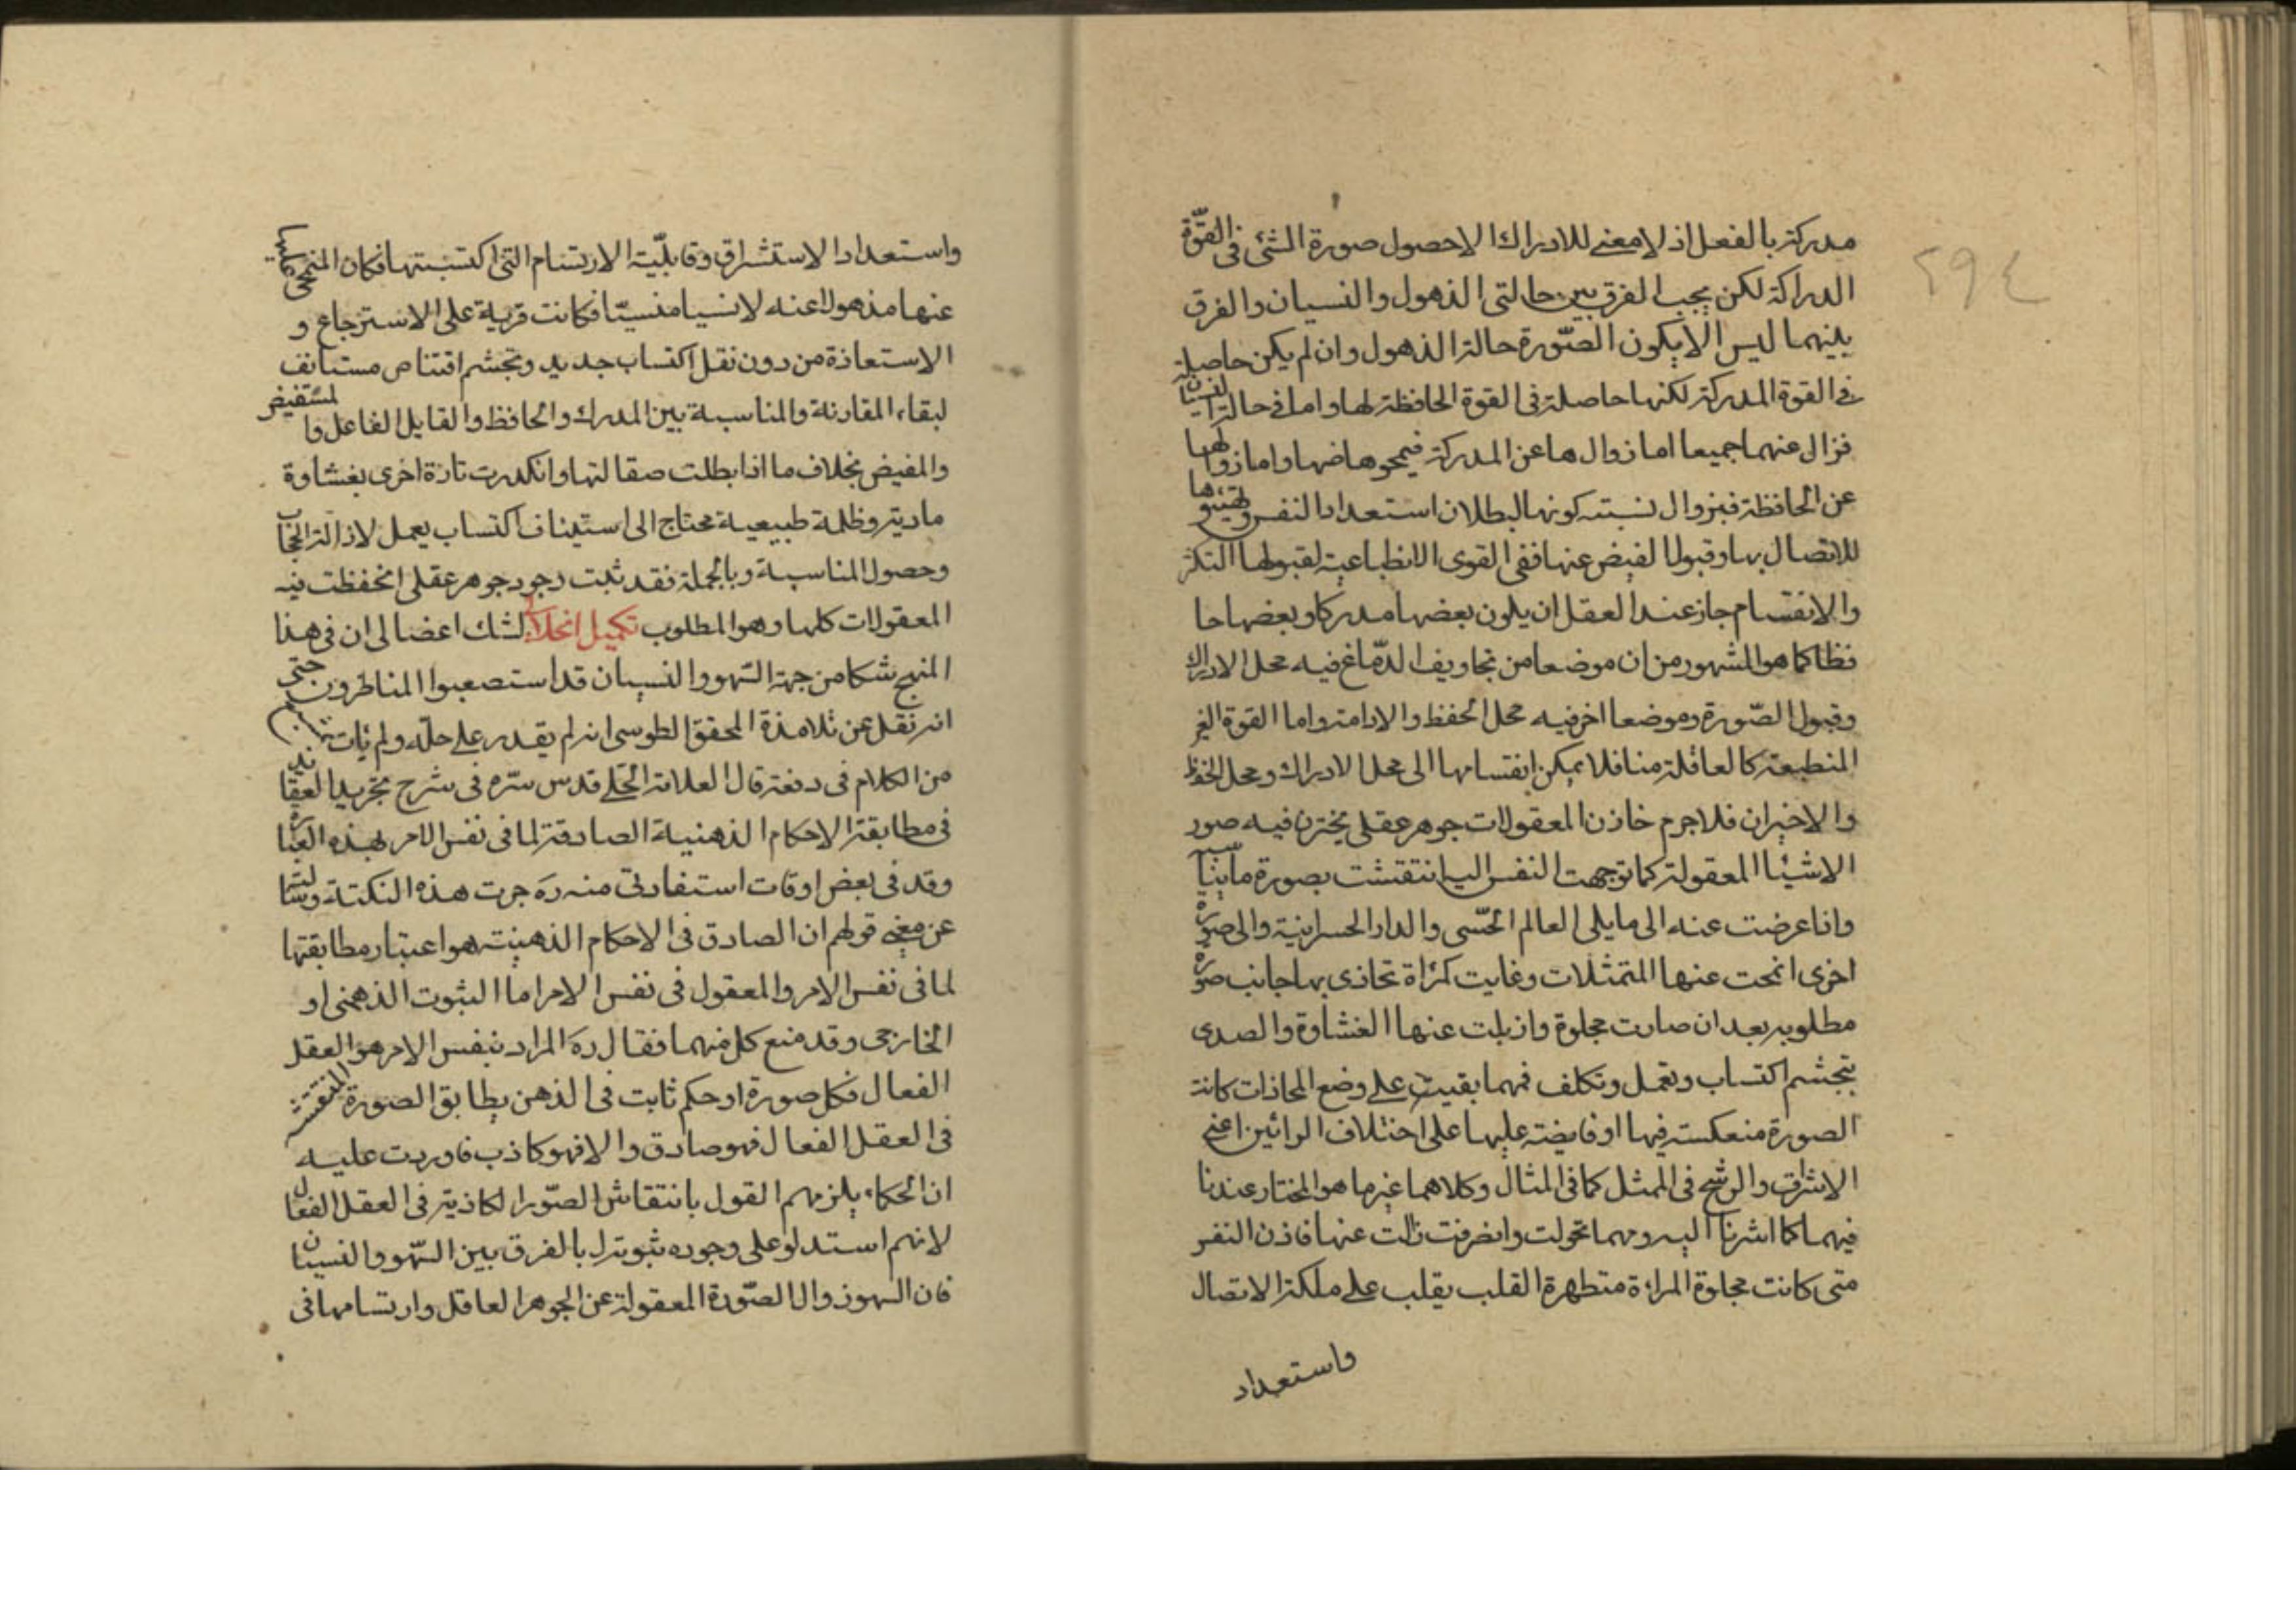 مدركة بالفعل اذ لا معنى للادراك الا حصول صورة الشئ فى القوّة
الدراكة لكن يجب الفرق بين حالتى الذهول والنسيان والفرق
بينهما ليس الا بكون الصّورة حالة الذهول وان لم يكن حاصلة
فى القوة المدركة لكنها حاصلة فى القوة الحافظة لها واما فى حالة النسيان
فزال عنهما جميعا اما زوالها عن المدركة فبمحوها ضها واما زوالها
عن الحافظة فبزوال نسبته كونها لبطلان استعداد النفس وتهيئوها
للاتصال بها وقبول الفيض عنها ففى القوى الانطباعية لقبولها التكثر
والانقسام جاز عند العقل ان يكون بعضها مدركا وبعضها حا
فظا كما هو المشهور من ان موضعا من تجاويف الدّماغ فيه محل الادراك
وقبول الصّورة وموضعا اخر فيه محل الحفظ والادامة واما القوة الغير
المنطبعة كالعاقلة منا فلا يمكن انقسامها الى محل الادراك ومحل الحفظ
والاخزان فلا جرم خازن المعقولات جوهر عقلى يختزن فيه صور
الاشيئا المعقولة كما توجهت النفس اليه انتقشت بصورة ما يناسبها
واذا عرضت عنه الى ما يلى العالم الحسّى والدار الجسمانية والى صورة
اخرى انمحت عنها المتمثلات وغايت كمراة تحاذى بها جانب صورة
مطلوبه بعد ان صارت مجلوة وازيلت عنها الغشاوة والصدى
بتجشم اكتساب وتعمل وتكلف فهما بقيت على وضع المحاذات كانت
الصورة منعكسة فيها او فايضة عليها على اختلاف الرائين اعنى
الاشراق والرشح فى الممثل كما فى المثال وكلاهما غير ما هو المختار عندنا
فيهما كما اشرنا اليه ومهما تحولت وانصرفت زالت عنها فاذن النفس
متى كانت مجلوة المراءة متطهرة القلب يقلب على ملكة الاتصال
واستعداد
٢٩٤
واستعداد الاستشراق وقابليّة الارتسام التى اكتسبتها فكان المنمحى
عنها مذهولا عنه لا نسيا منسيّا فكانت قربية على الاسترجاع و
الاستعاذة من دون نقل اكتساب جديد وتجشم اقتناص مستانف
لبقاء المقارنة والمناسبة بين المدرك والحافظ والقابل الفاعل والمستفيض
والمفيض بخلاف ما اذا بطلت صقالتها وانكدرت تارة اخرى بغشاوة
مادية وظلمة طبيعية محتاج الى استيناف اكتساب يعمل لازالة الحجاب
وحصول المناسبة وبالجملة فقد ثبت وجود جوهر عقلى انحفظت فيه
المعقولات كلها وهو المطلوب تكميل انحلالى لشك اعضالى ان فى هذا
المنهج شكا من جهة السّهو والنسيان قد استصعبوا المناظرون حتى
انه نقل عن تلامذة المحقق الطوسى انه لم يقدر على حلّه ولم يات بشئ
من الكلام فى دفعة قال العلامة الحلى قدس سرّه فى شرح تجريد العقايد
فى مطابقة الاحكام الذهنية الصادقة لما فى نفس الامر بهذه العبارة
وقد فى بعض اوقات استفادتى منه ره جرت هذه النكتة وسالته
عن معنى قولهم ان الصادق فى الاحكام الذهنية هو اعتبار مطابقتها
لما فى نفس الامر والمعقول فى نفس الامر اما الثبوت الذهنى او
الخارجى وقد منع كل منهما فقال ره المراد بنفس الامر هو العقل
الفعال فكل صورة او حكم ثابت فى الذهن يطابق الصورة المنتقشة
فى العقل الفعال فهو صادق والا فهو كاذب فاوردت عليه
ان الحكماء يلزمهم القول بانتقاش الصّور الكاذبة فى العقل الفعال
لانهم استدلو على وجوده ثبوته بالفرق بين السّهو والنسيان
فان السهو زوال الصّورة المعقولة عن الجوهر العاقل وارتسامها فى